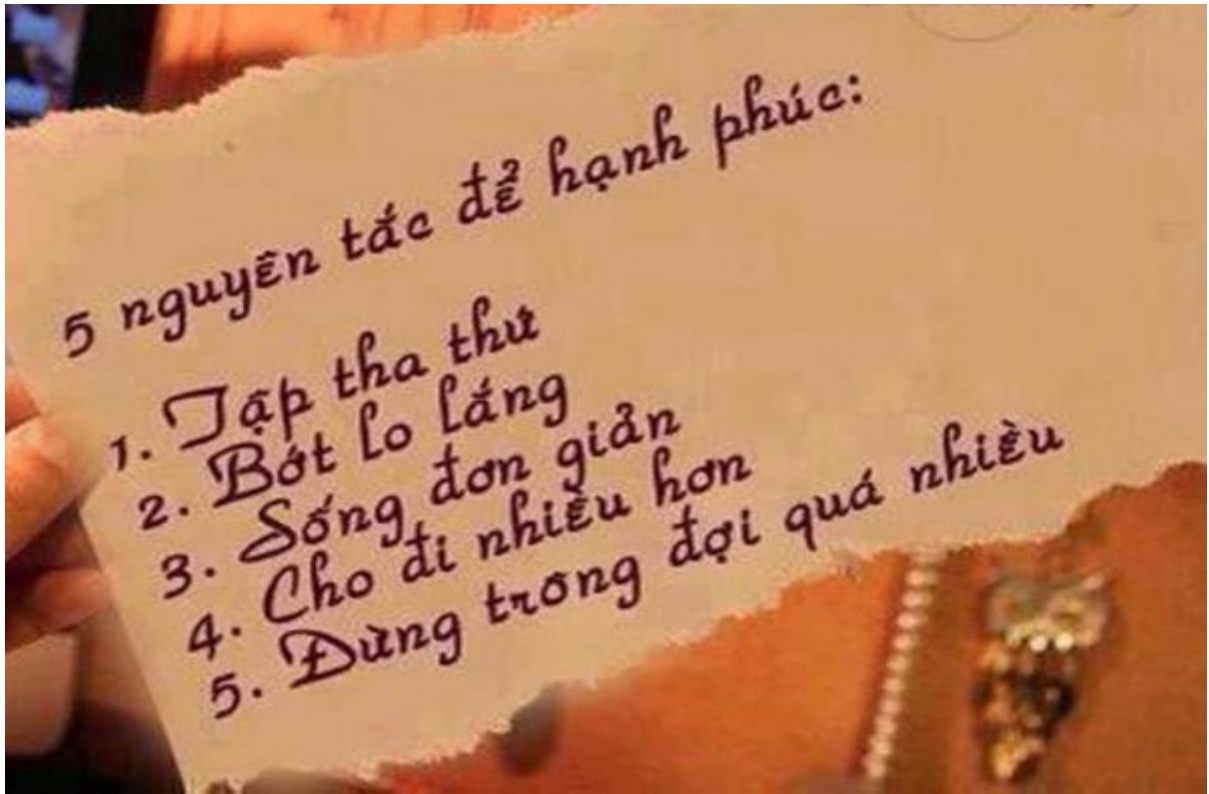 5 nguyên tắc để hạnh phúc:
1. Tập tha thứ
2. Bớt lo lắng
3. Sống đơn giản
4. Cho đi nhiều hơn
5. Đừng trông đợi quá nhiều